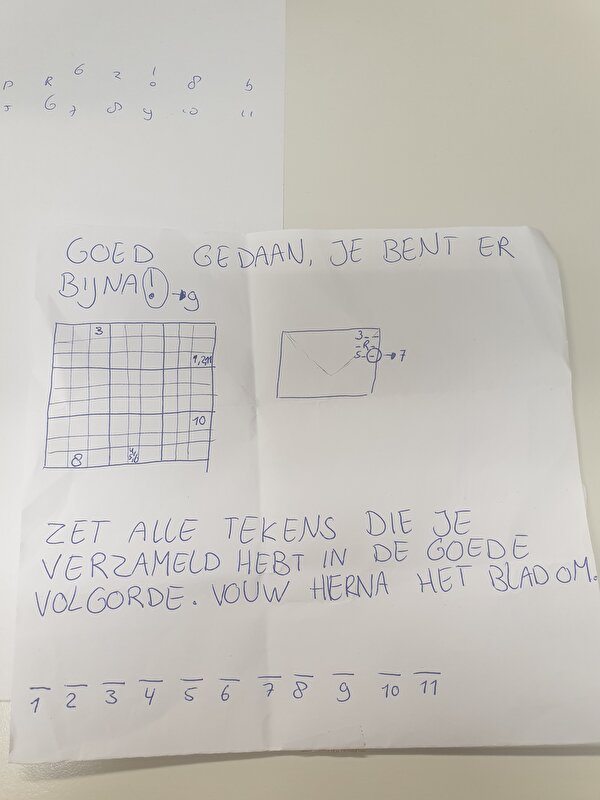 P R 6 2 ! 8 5
J 6 7 8 9 10 11
GOED GEDAAN, JE BENT ER
BIJNA! → 9
3
1,2,11
10
8
3 - -
- R -
5 - - → 7
ZET ALLE TEKENS DIE JE
VERZAMELD HEBT IN DE GOEDE
VOLGORDE. VOUW HIERNA HET BLAD OM.
1 2 3 4 5 6 7 8 9 10 11